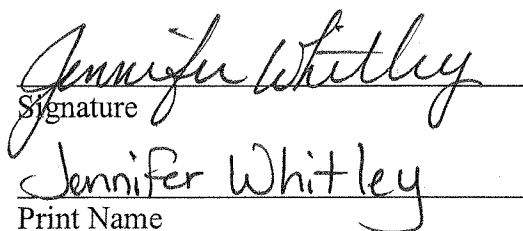 Jennifer Whitley
Signature
Jennifer Whitley
Print Name